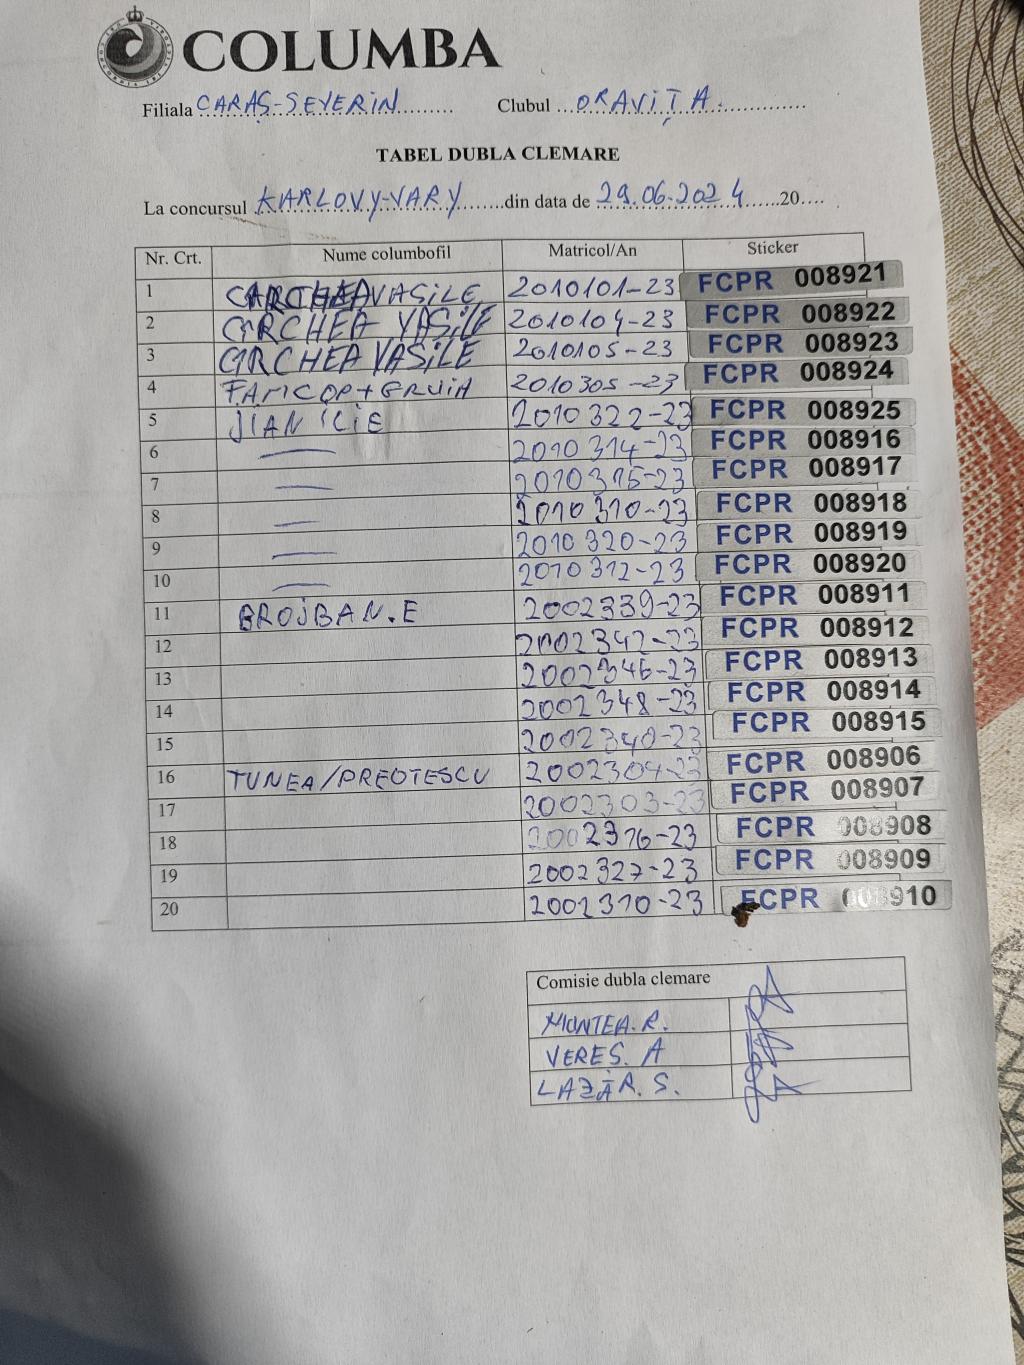 COLUMBA
Filiala CARAȘ-SEVERIN Clubul ORAVIȚA
TABEL DUBLA CLEMARE
La concursul KARLOVY-VARY din data de 29.06.2024 20
Nr. Crt. Nume columbofil Matricol/An Sticker
1 CARCHEA VASILE 2010101-23 FCPR 008921
2 CARCHEA VASILE 2010104-23 FCPR 008922
3 CARCHEA VASILE 2010105-23 FCPR 008923
4 FAMCOP+GRUIA 2010305-23 FCPR 008924
5 JIAN ILIE 2010322-23 FCPR 008925
6 — 2010314-23 FCPR 008916
7 — 2010315-23 FCPR 008917
8 — 2010310-23 FCPR 008918
9 — 2010320-23 FCPR 008919
10 — 2010312-23 FCPR 008920
11 BROJBAN.E 2002339-23 FCPR 008911
12 2002342-23 FCPR 008912
13 2002346-23 FCPR 008913
14 2002348-23 FCPR 008914
15 2002340-23 FCPR 008915
16 TUNEA/PREOTESCU 2002304-23 FCPR 008906
17 2002303-23 FCPR 008907
18 2002316-23 FCPR 008908
19 2002327-23 FCPR 008909
20 2002310-23 FCPR 008910
Comisie dubla clemare
MUNTEA.R.
VERES. A
LAZĂR. S.